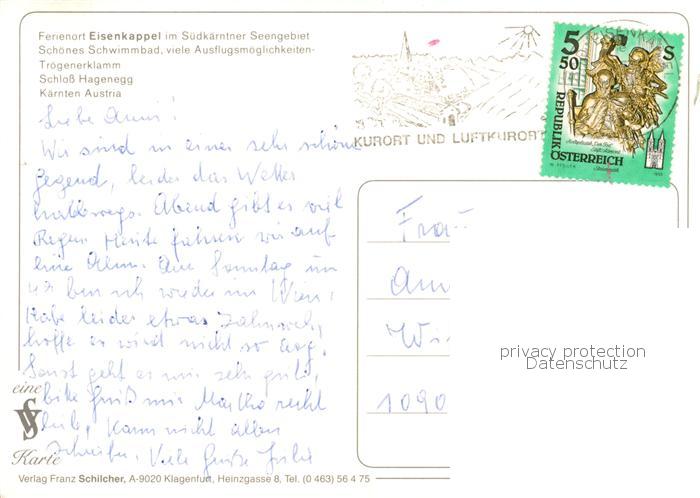 Ferienort Eisenkappel im Südkärntner Seengebiet
Schönes Schwimmbad, viele Ausflugsmöglichkeiten-
Trögenerklamm
Schloß Hagenegg
Kärnten Austria
KURORT UND LUFTKURORT
5 50 S
REPUBLIK
ÖSTERREICH
Liebe
Wir sind in einer sehr schönen
Gegend, leider das Wetter
halbwegs. Abend gibt es viel
Regen. Heute fahren wir auf
eine Alm. Am Sonntag um
17 bin ich wieder in Wien,
Habe leider etwas Zahnweh,
hoffe es wird nicht so arg.
Sonst geht es mir sehr gut,
bitte Grüß mir Martha recht
lieb, kann nicht allen
schreiben. Viele Grüße
Frau
1090
privacy protection
Datenschutz
eine
VS
Karte
Verlag Franz Schilcher, A-9020 Klagenfurt, Heinzgasse 8, Tel. (0 463) 56 4 75